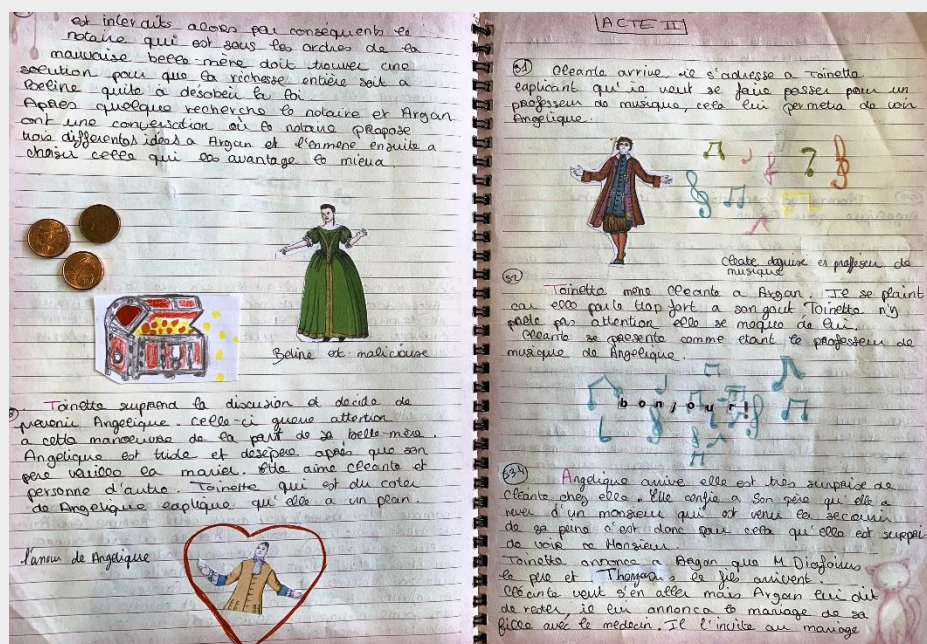 est interdits alors par conséquents le
notaire qui est sous les ordres de la
mauvaise belle-mère doit trouver une
solution pour que la richesse entière soit a
Beline quite à désobeir la loi
Après quelque recherche le notaire et Argan
ont une conversation où le notaire propose
trois differentes idées a Argan et l'emmène ensuite a
choisir celle qui l'avantage le mieux
Beline est malicieuse
Toinette surprend la discusion et décide de
prevenir Angelique. Celle-ci queue attention
a cette manoeuvre de la part de sa belle-mère.
Angelique est triste et desépère après que son
père veuilles la marier. Elle aime cleante et
personne d'autre. Toinette qui est du coter
de Angelique explique qu'elle a un plan.
l'amour de Angelique
ACTE II
S1 Cleante arrive il s'adresse a Toinette
explicant qu'il veut se faire passer pour un
professeur de musique, cela lui permetra de voir
Angelique.
Cleante deguise en profeseur de
musique
S2
Toinette mène Cleante a Argan. Il se plaint
car elle parle trop fort a son gout Toinette n'y
porte pas attention elle se moque de lui.
Cleante se presente comme etant le professeur de
musique de Angelique.
bonjour!
S34
Angelique arrive elle est très surprise de
Cleante chez elle. Elle confie a son père qu'elle a
rever d'un monsieur qui est venu la secourir
de sa peine c'est donc pour cela qu'elle est surprise
de voir ce Monsieur.
Toinette annonce a Argan que M Diafoirus
le père et Thomas le fils arrivent.
Cleante veut s'en aller mais Argan lui dit
de rester, il lui annonca le mariage de sa
fille avec le medecin. Il l'invite au mariage